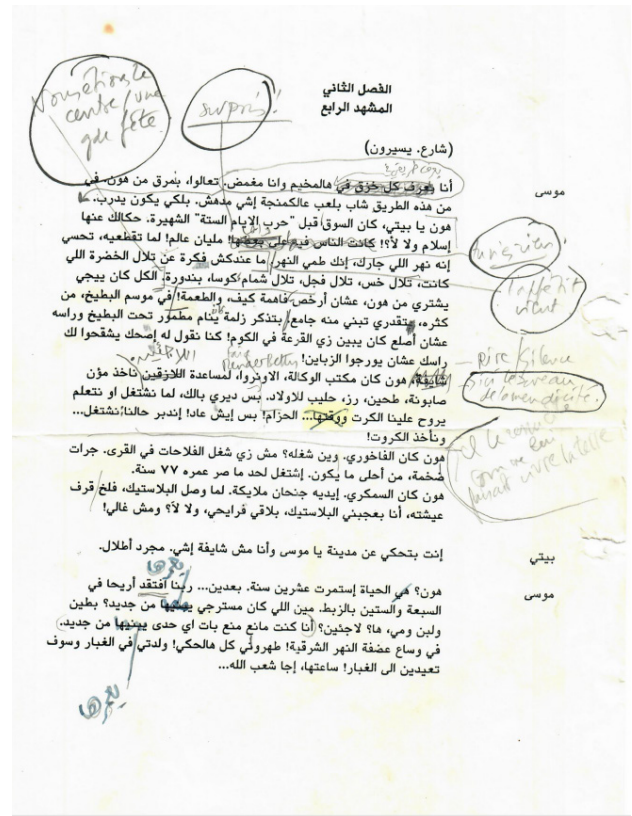 الفصل الثاني
المشهد الرابع
Nous étions le
centre / une
gde fête
surpris!
(شارع. يسيرون)
موسى
أنا بعرف كل خزق في هالمخيم وانا مغمض. تعالوا، بنمرق من هون. في
من هذه الطريق شاب بلعب عالكمنجة إشي مدهش. بلكي يكون يدرب.
هون يا بيتي، كان السوق قبل "حرب الإيام الستة" الشهيرة. حكالك عنها
إسلام ولا لأ؟! كانت الناس فيه على بعضها! مليان عالم! لما تقطعيه، تحسي
إنه نهر اللي جارك، إنك طمي النهر. ما عندكش فكرة عن تلال الخضرة اللي
كانت، تلال خس، تلال فجل، تلال شمام كوسا، بندورة. الكل كان ييجي
يشتري من هون، عشان أرخص، فاهمة كيف، والطعمة! في موسم البطيخ، من
كثره، بتقدري تبني منه جامع. بتذكر زلمة ينام مطمور تحت البطيخ وراسه
عشان أصلع كان يبين زي القرعة في الكوم! كنا نقول له إصحك يشقحوا لك
راسك عشان يورجوا الزباين!
l'appétit
vient
rire / silence
هون كان مكتب الوكالة، الاونروا، لمساعدة اللازقين ناخذ مؤن
ici le bureau
de la mendicité.
صابونة، طحين، رز، حليب للاولاد. بس ديري بالك، لما نشتغل او نتعلم
يروح علينا الكرت ووقتها... الحزام! بس إيش عاد! إندبر حالنا! نشتغل...
ونأخذ الكروت!
هون كان الفاخوري. وين شغله؟ مش زي شغل الفلاحات في القرى. جرات
ضخمة، من أحلى ما يكون. إشتغل لحد ما صر عمره ٧٧ سنة.
هون كان السمكري. إيديه جنحان ملايكة. لما وصل البلاستيك، فلخ قرف
عيشته، أنا بعجبني البلاستيك، بلاقي فرايحي، ولا لأ؟ ومش غالي!
بيتي
إنت بتحكي عن مدينة يا موسى وأنا مش شايفة إشي. مجرد أطلال.
يعمرها
موسى
هون؟ هي الحياة إستمرت عشرين سنة. بعدين... ربنا افتقد أريحا في
السبعة والستين بالزبط. مين اللي كان مسترجي يبنيها من جديد؟ بطين
ولبن ومي، ها؟ لاجئين؟ أنا كنت مانع منع بات اي حدى يبنيها من جديد.
في وساع عضفة النهر الشرقية! طهروني كل هالحكي! ولدتي في الغبار وسوف
تعيدين الى الغبار! ساعتها، إجا شعب الله...
يعمرها